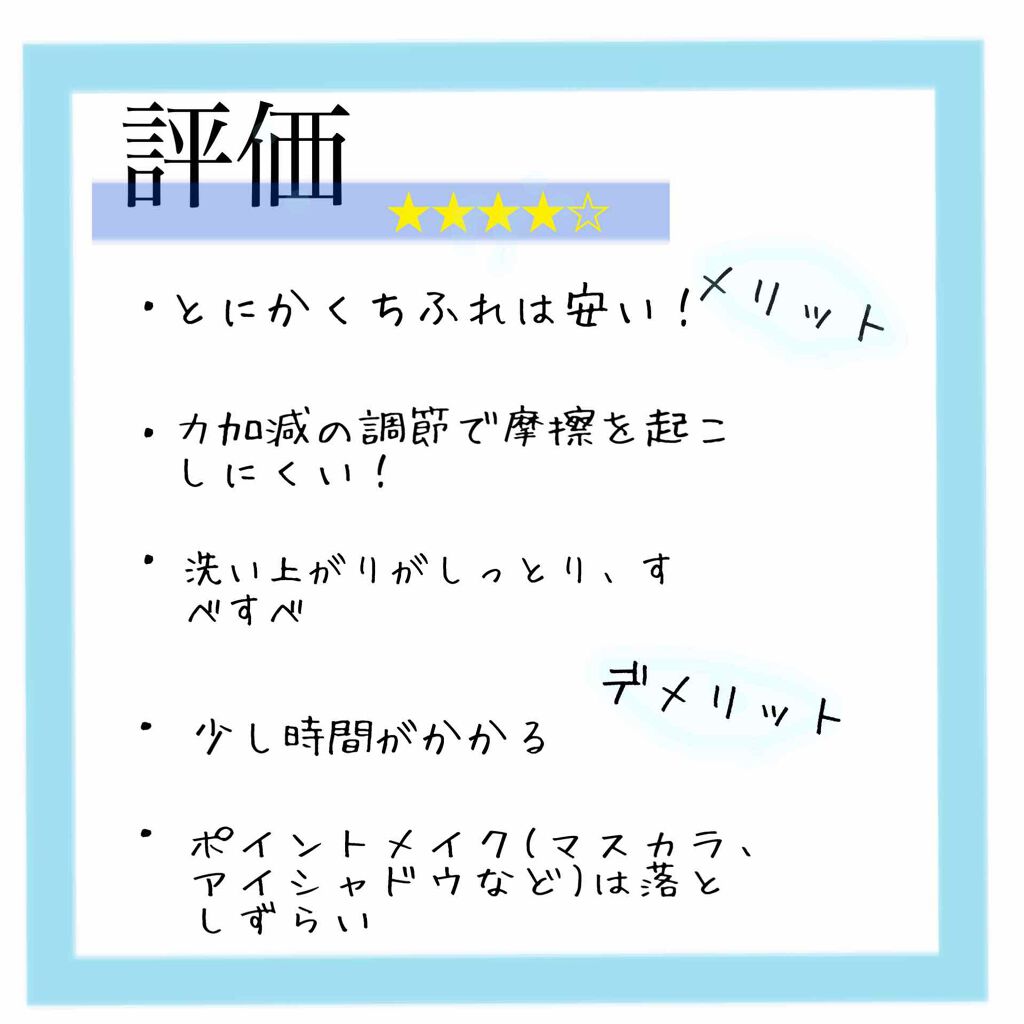 評価
★★★★☆
・とにかくちふれは安い！
メリット
・力加減の調節で摩擦を起こ
しにくい！
・洗い上がりがしっとり、す
べすべ
デメリット
・少し時間がかかる
・ポイントメイク(マスカラ、
アイシャドウなど)は落と
しずらい